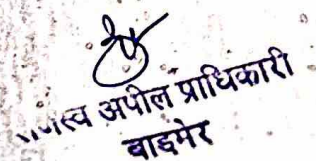 अपील प्राधिकारी
बाड़मेर